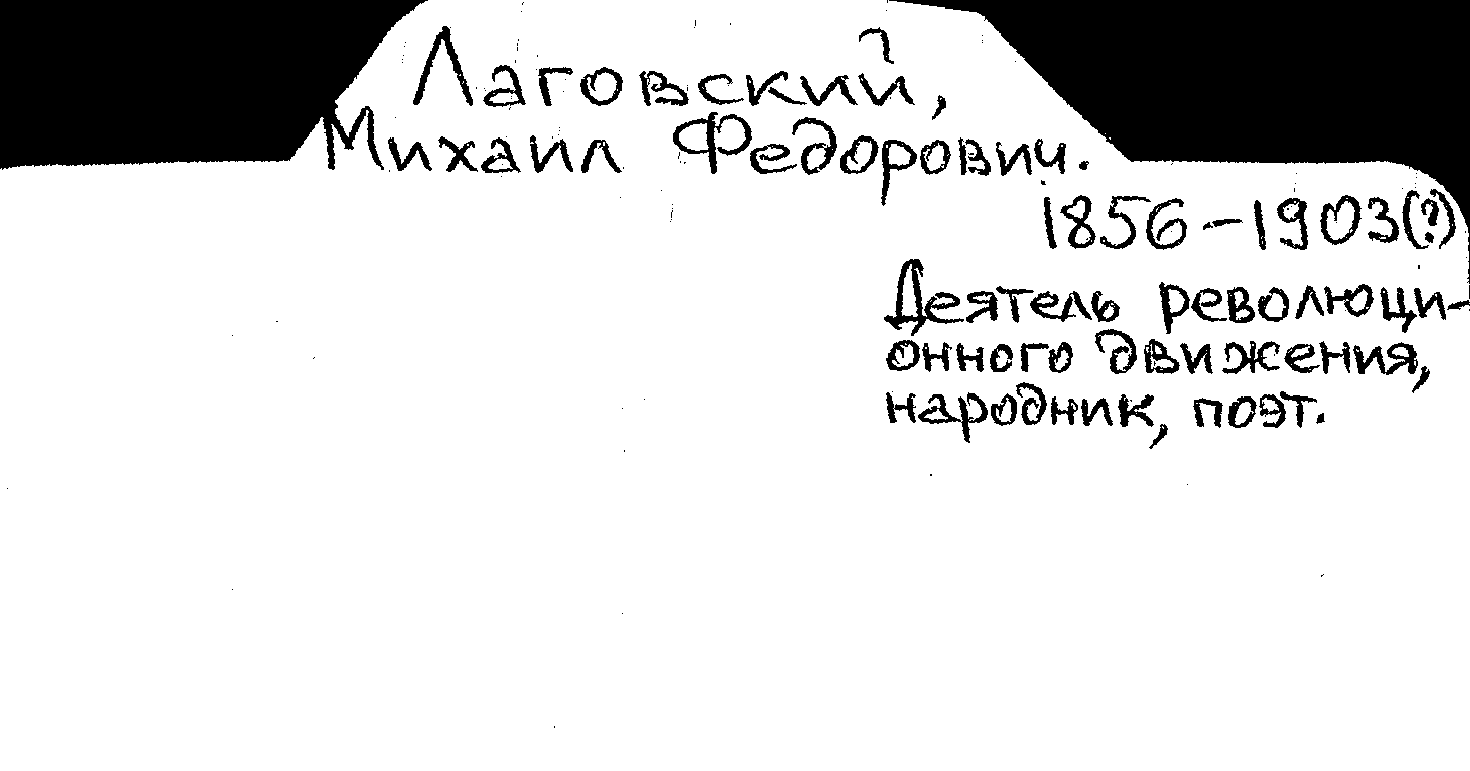 Лаговский,
Михаил Федорович.
1856-1903(?)
Деятель революци-
онного движения,
народник, поэт.